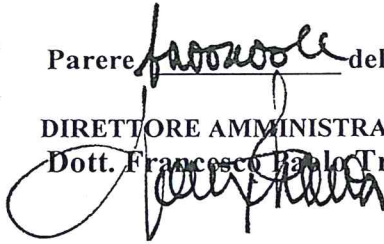 Parere favorevole del
DIRETTORE AMMINISTRA
Dott. Francesco Paolo Tr